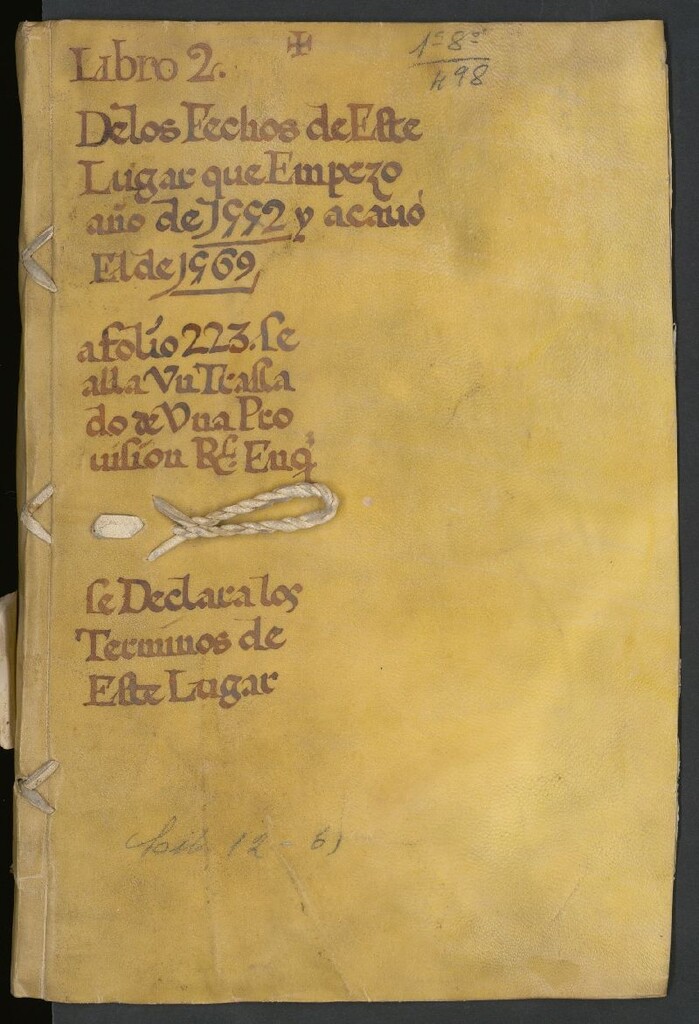 Libro 2. ✠
1º 8º
498
Delos Fechos de Este
Lugar que Empezo
año de 1552 y acauó
El de 1569,
afolio 223. se
alla Vn Trasla
do de Vna Pro
uision Rl. Enq.
se Declara los
Terminos de
Este Lugar
12 -